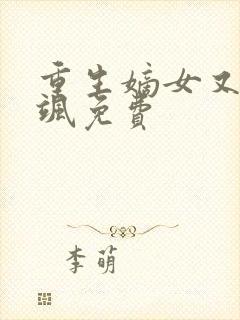 重生嫡女又
飒免费
李萌